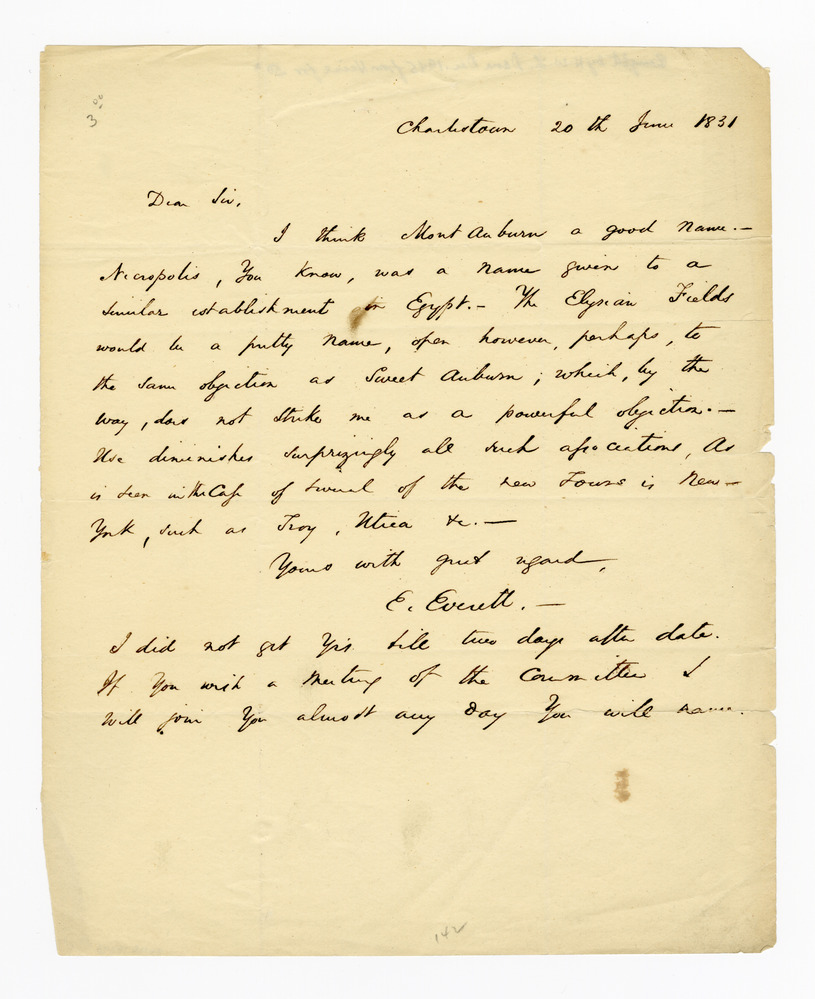 3.00
Charlestown 20th June 1831
Dear Sir,
I think Mont Auburn a good name.—
Necropolis, You know, was a name given to a
similar establishment in Egypt.— The Elysian Fields
would be a pretty name, open however, perhaps, to
the same objection as Sweet Auburn; which, by the
way, does not strike me as a powerful objection.—
Use diminishes surprizingly all such associations, As
is seen in the Case of several of the new Towns is New-
York, such as Troy, Utica &c.—
Yours with great regard,
E. Everett.—
I did not get Yrs. till two days after date.
If You wish a meeting of the Committee I
will join You almost any day You will name.
142